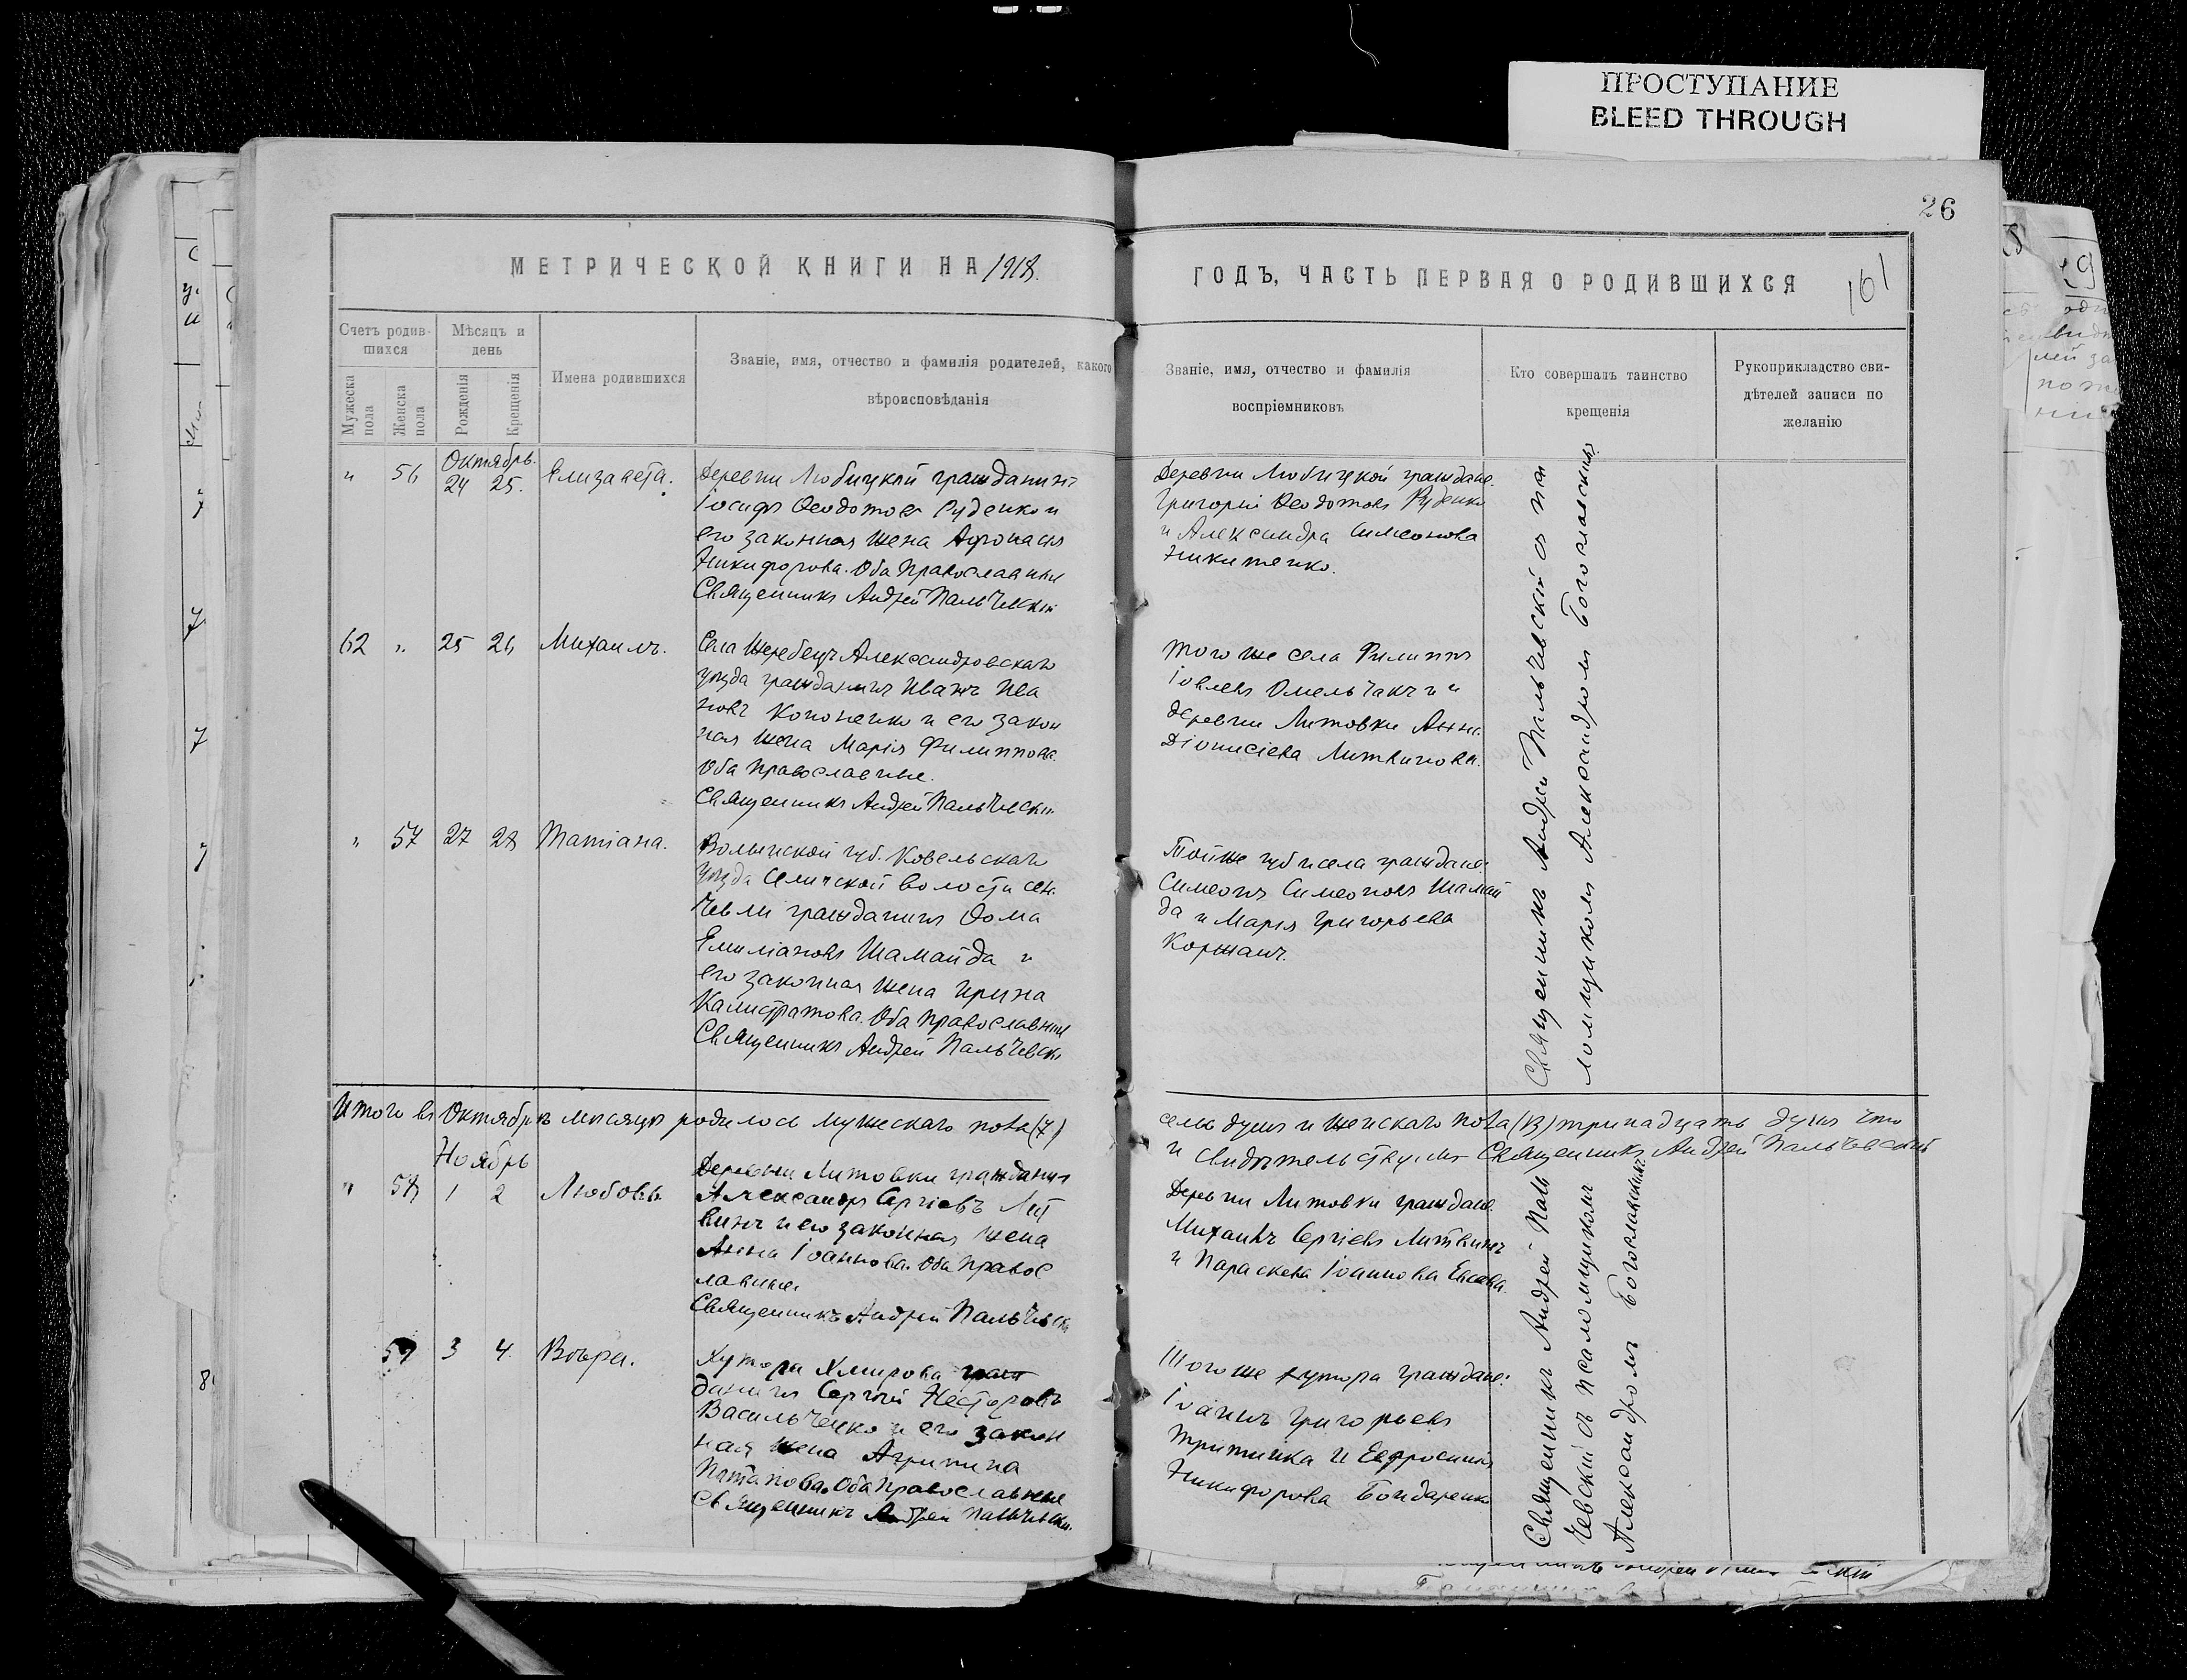 ПРОСТУПАНИЕ
BLEED THROUGH
26
МЕТРИЧЕСКОЙ КНИГИ НА 1918.
ГОДЪ, ЧАСТЬ ПЕРВАЯ О РОДИВШИХСЯ
161
Счетъ родив-
шихся
Мужеска
пола
Женска
пола
Мѣсяцъ и
день
Рожденія
Крещенія
Имена родившихся
Званіе, имя, отчество и фамилія родителей, какого
вѣроисповѣданія
Званіе, имя, отчество и фамилія
воспріемниковъ
Кто совершалъ таинство
крещенія
Рукоприкладство сви-
дѣтелей записи по
желанію
Октябрь.
" 56 24 25. Елизавета.
Деревни Любицкой гражданинъ
Іосифъ Ѳеодотовъ Руденко и
его законная жена Афонасія
Никифорова. Оба Православные
Священникъ Андрей Пальчевскій
Деревни Любицкой граждане.
Григорій Ѳеодотовъ Руденко
и Александра Симеонова
Никитенко.
62 " 25 26 Михаилъ.
Села Жеребецъ Александровскаго
уѣзда гражданинъ Иванъ Ива
новъ Кононенко и его закон
ная жена Марія Филиппова.
Оба Православные.
Священникъ Андрей Пальчевскій
Того же села Филиппъ
Іовлевъ Омельчакъ и
деревни Литовки Анна
Діонисіева Литвинова.
" 57 27 28 Татіана.
Волынской губ. Ковельскаго
уѣзда волости
гражданинъ Ѳома
Емиліановъ Шамайда и
его законная жена Ирина
Калистратова. Оба Православные
Священникъ Андрей Пальчевскі
Той же губ и села граждане:
Симеонъ Симеоновъ Шамай
да и Марія Григорьева
Коршанъ.
Священникъ Андрей Пальчевскій съ пса
ломщикомъ Александромъ Богославскимъ.
Итого въ Октябрѣ мѣсяцѣ родилось мужескаго пола (7)
семь душъ и женскаго пола (13) тринадцать душъ что
и свидѣтельствуемъ Священникъ Андрей Пальчевскій
Ноябрь
" 58 1 2 Любовь.
Деревни Литовки гражданинъ
Александръ Сергіевъ Лит
винъ и его законная жена
Анна Іоаннова. Оба Правос
лавные.
Священникъ Андрей Пальчевск
Деревни Литовки граждане.
Михаилъ Сергіевъ Литвинъ
и Параскева Іоаннова
59 3 4 Вѣра.
Хутора Хмирова граж
данинъ Сергій Несторовъ
Васильченко и его закон
ная жена Агрипина
Потапова. Оба Православные
Священникъ Андрей Пальчевски.
Того же хутора граждане:
Іоаннъ Григорьевъ
и Евфросинія
Никифорова Бондаренко
Священникъ Андрей Паль
чевскій съ псаломщикомъ
Александромъ Богославскимъ.